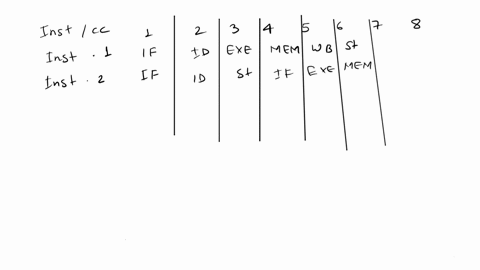 Inst / cc 1 2 3 4 5 6 7 8
Inst . 1 IF ID EXE MEM WB St
Inst . 2 IF ID St IF EXE MEM